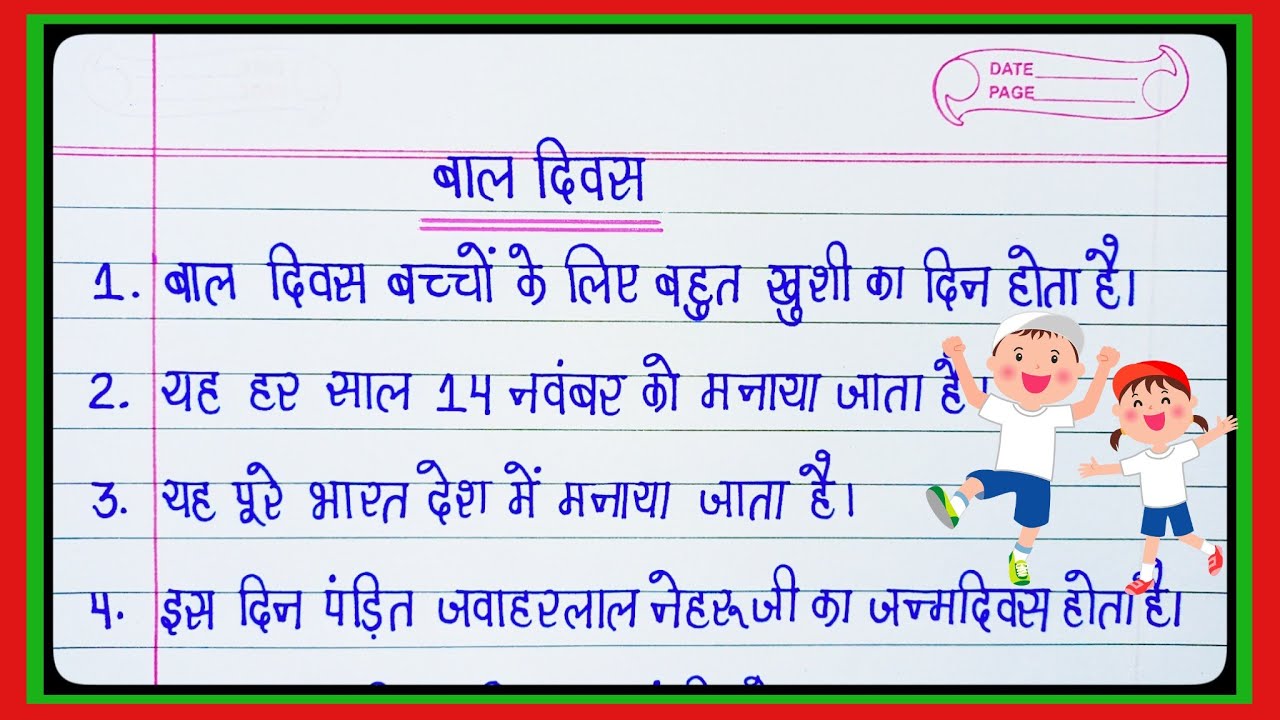 DATE
PAGE
बाल दिवस
1. बाल दिवस बच्चों के लिए बहुत खुशी का दिन होता है।
2. यह हर साल 14 नवंबर को मनाया जाता है।
3. यह पूरे भारत देश में मनाया जाता है।
4. इस दिन पंड़ित जवाहरलाल नेहरूजी का जन्मदिवस होता है।